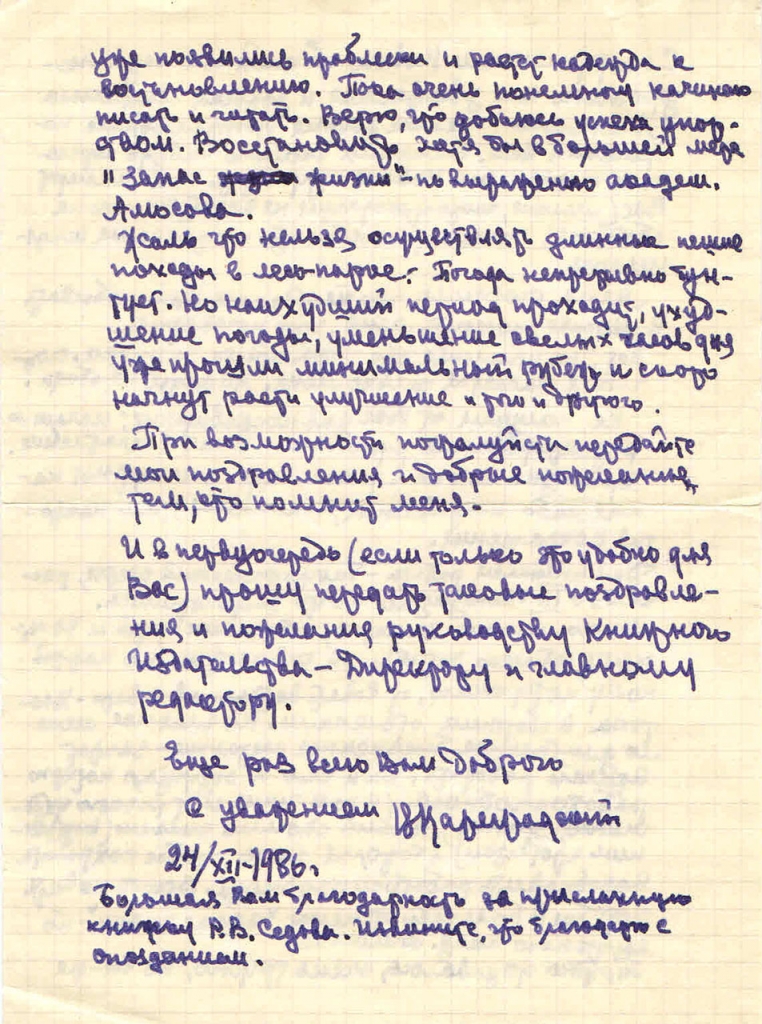 уже появились проблески и растет надежда к
востановлению. Пока очень понемногу начинаю
писать и читать. Верю, что добьюсь успеха упор-
ством. Восстановить хотя бы в большей мере
"Запас жизни" - по выражению академ.
Амосова.
Жаль что нельзя осуществлять длинные пешие
походы в лесо-парке. Погода непрерывно бун-
тует. Но наихудший период проходит, ухуд-
шение погоды, уменьшение светлых часов дня
уже прошли минимальный рубеж и скоро
начнут расти улучшение и того и другого.
При возможности пожалуйста передайте
мои поздравления и добрые пожелания,
тем, кто помнит меня.
И в первую очередь (если только это удобно для
Вас) прошу передать таковые поздравле-
ния и пожелания руководству Книжного
Издательства - Директору и главному
редактору.
Еще раз всего Вам Доброго
С уважением
24/XII-1986г.
Большая Вам благодарность за присланную
книжку В.В. Седова. Извините, что благодарю с
опозданием.